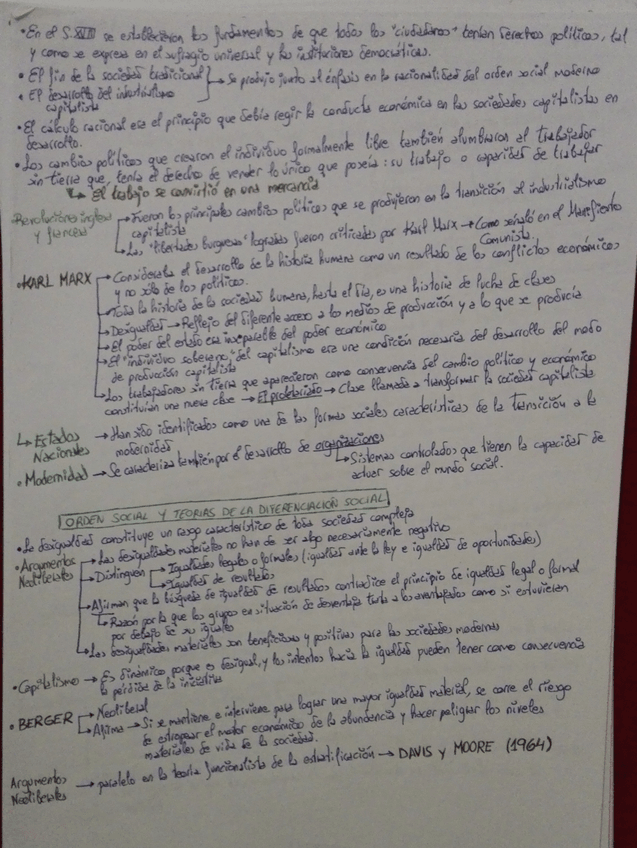 • En el S.XVIII se establecieron los fundamentos de que todos los "ciudadanos" tenían derechos políticos, tal
y como se expresa en el sufragio universal y las instituciones democráticas.
• El fin de la sociedad tradicional
• El desarrollo del industrialismo
capitalista
→ Se produjo junto al énfasis en la racionalidad del orden social moderno
• El cálculo racional era el principio que debía regir la conducta económica en las sociedades capitalistas en
desarrollo.
• Los cambios políticos que crearon el individuo formalmente libre también alumbraron al trabajador
sin tierra que, tenía el derecho de vender lo único que poseía: su trabajo o capacidad de trabajar
↳ El trabajo se convirtió en una mercancía
Revoluciones inglesa
y francesa
→ Fueron los principales cambios políticos que se produjeron en la transición al industrialismo
capitalista
→ Las "libertades burguesas" logradas fueron criticadas por Karl Marx → Como señaló en el Manifiesto
Comunista.
• KARL MARX → Consideraba el desarrollo de la historia humana como un resultado de los conflictos económicos
y no sólo de los políticos.
→ Toda la historia de la sociedad humana, hasta el día, es una historia de lucha de clases
→ Desigualdad → Reflejo del diferente acceso a los medios de producción y a lo que se producía
→ El poder del estado era inseparable del poder económico
→ El "individuo soberano" del capitalismo era una condición necesaria del desarrollo del modo
de producción capitalista
→ Los trabajadores sin tierra que aparecieron como consecuencia del cambio político y económico
constituían una nueva clase → El proletariado → Clase llamada a transformar la sociedad capitalista
↳ Estados
Nacionales
→ Han sido identificados como una de las formas sociales características de la transición a la
modernidad
• Modernidad → Se caracteriza también por el desarrollo de organizaciones
↳ Sistemas controlados que tienen la capacidad de
actuar sobre el mundo social.
ORDEN SOCIAL Y TEORÍAS DE LA DIFERENCIACIÓN SOCIAL
• La desigualdad constituye un rasgo característico de toda sociedad compleja
• Argumentos
Neoliberales
→ Las desigualdades materiales no han de ser algo necesariamente negativo
→ Distinguen → Igualdades legales o formales (igualdad ante la ley e igualdad de oportunidades)
→ Igualdad de resultados
→ Afirman que la búsqueda de igualdad de resultados contradice el principio de igualdad legal o formal
↳ Razón por la que los grupos en situación de desventaja trata a los aventajados como si estuvieran
por debajo de su igual
→ Las desigualdades materiales son beneficiosas y positivas para las sociedades modernas
• Capitalismo → Es dinámico porque es desigual, y los intentos hacia la igualdad pueden tener como consecuencia
la pérdida de la iniciativa
• BERGER → Neoliberal
→ Afirma → Si se mantiene e interviene para lograr una mayor igualdad material, se corre el riesgo
de estropear el motor económico de la abundancia y hacer peligrar los niveles
materiales de vida de la sociedad.
Argumentos
Neoliberales
→ paralelo en la teoría funcionalista de la estratificación → DAVIS y MOORE (1964)